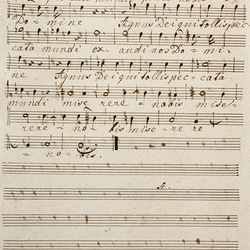 Do = mine Agnus Dei qui tollis pec =
cata mundi ex = audi nos Do = mi =
ne Agnus Dei qui tollis pec = cata
mundi mise rere = nobis mise =
rere = no = bis mise = re re
= no = bis.